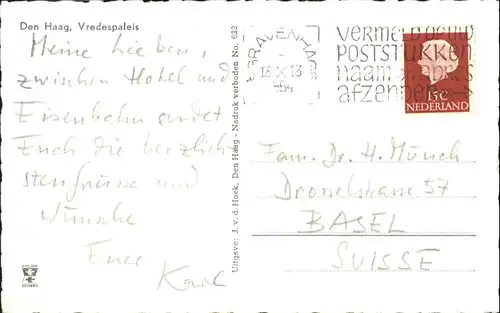 Den Haag, Vredespaleis
Meine Lieben,
zwischen Hotel und
Eisenbahn sendet
Euch die herzlich-
sten Grüsse und
Wünsche
Euer
Karl
Uitgave: J. v. d. Hoek, Den Haag - Nadruk verboden No. 622
'S GRAVENHAGE
13 X 13
-54
VERMELD OP UW
POSTSTUKKEN
naam
afzender
15c
NEDERLAND
Fam. Dr. H. Münch
Drosselstrasse 57
BASEL
SUISSE